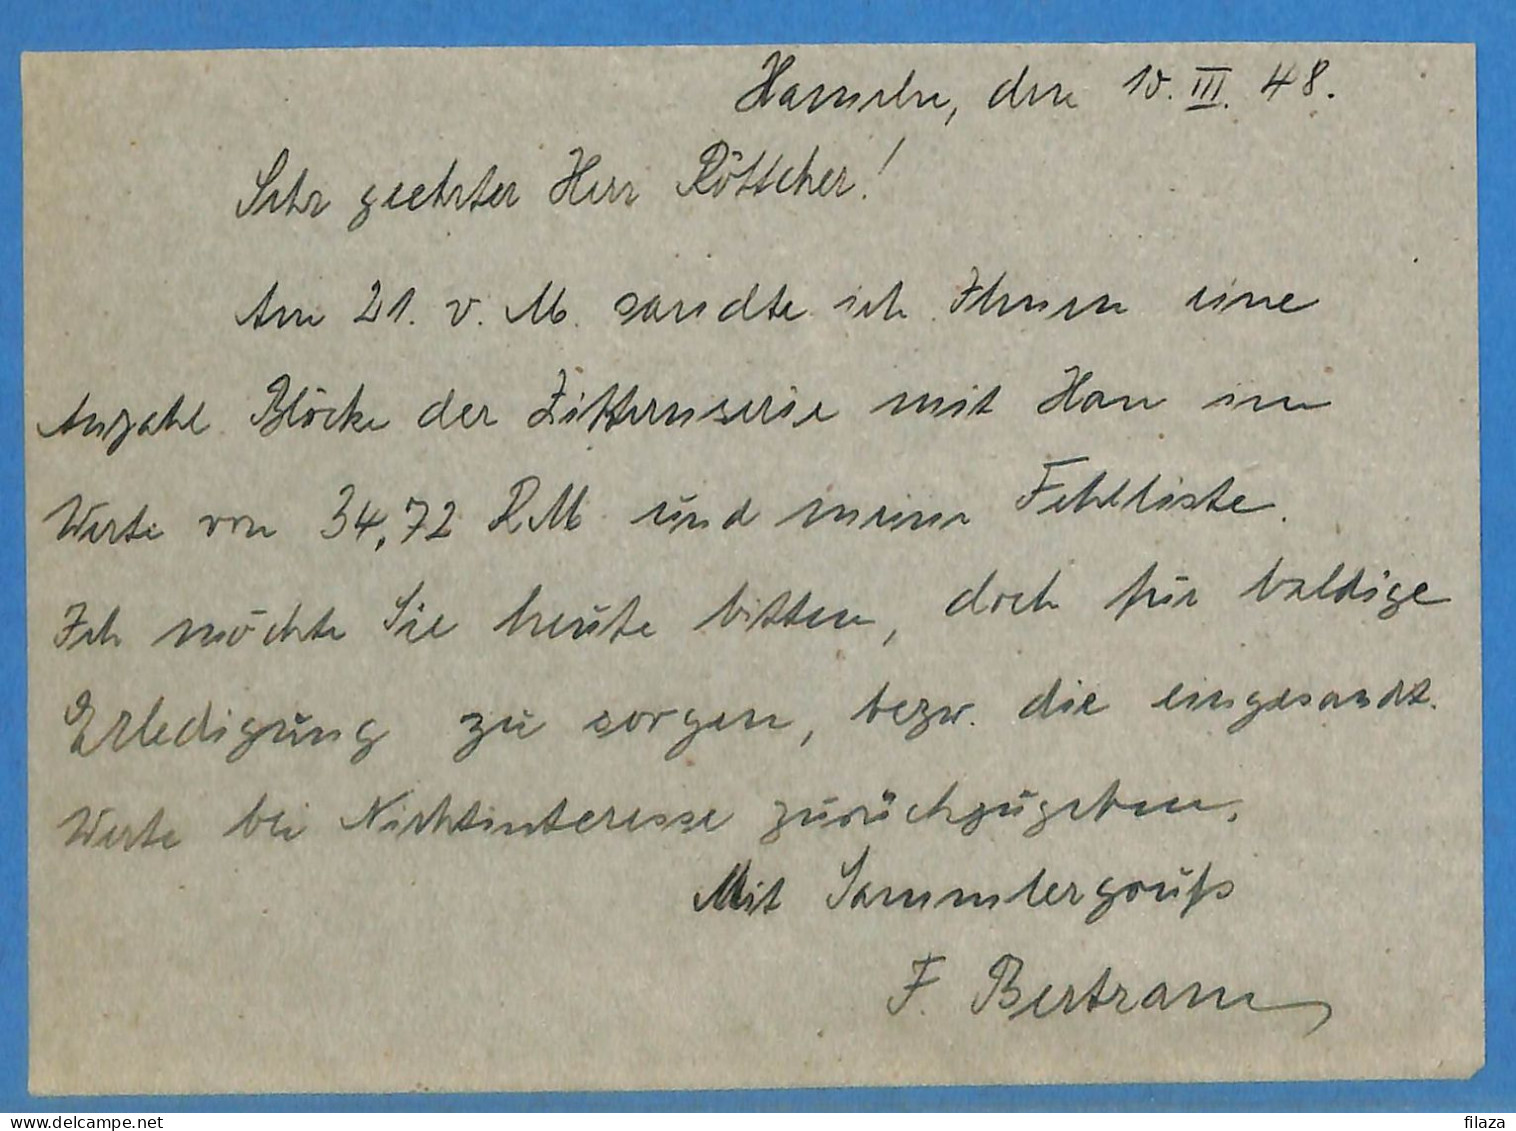 Hameln, den 10. III. 48.
Sehr geehrter Herr Röttcher!
Am 21. v. M. sandte ich Ihnen eine
Anzahl Blöcke der Ziffernserie mit Han im
Werte von 34,72 RM und meine Fehlliste.
Ich möchte Sie heute bitten, doch für baldige
Erledigung zu sorgen, bezw. die eingesandt.
Werte bei Nichtinteresse zurückzugeben.
Mit Sammlergruß
F. Bertram
filaza